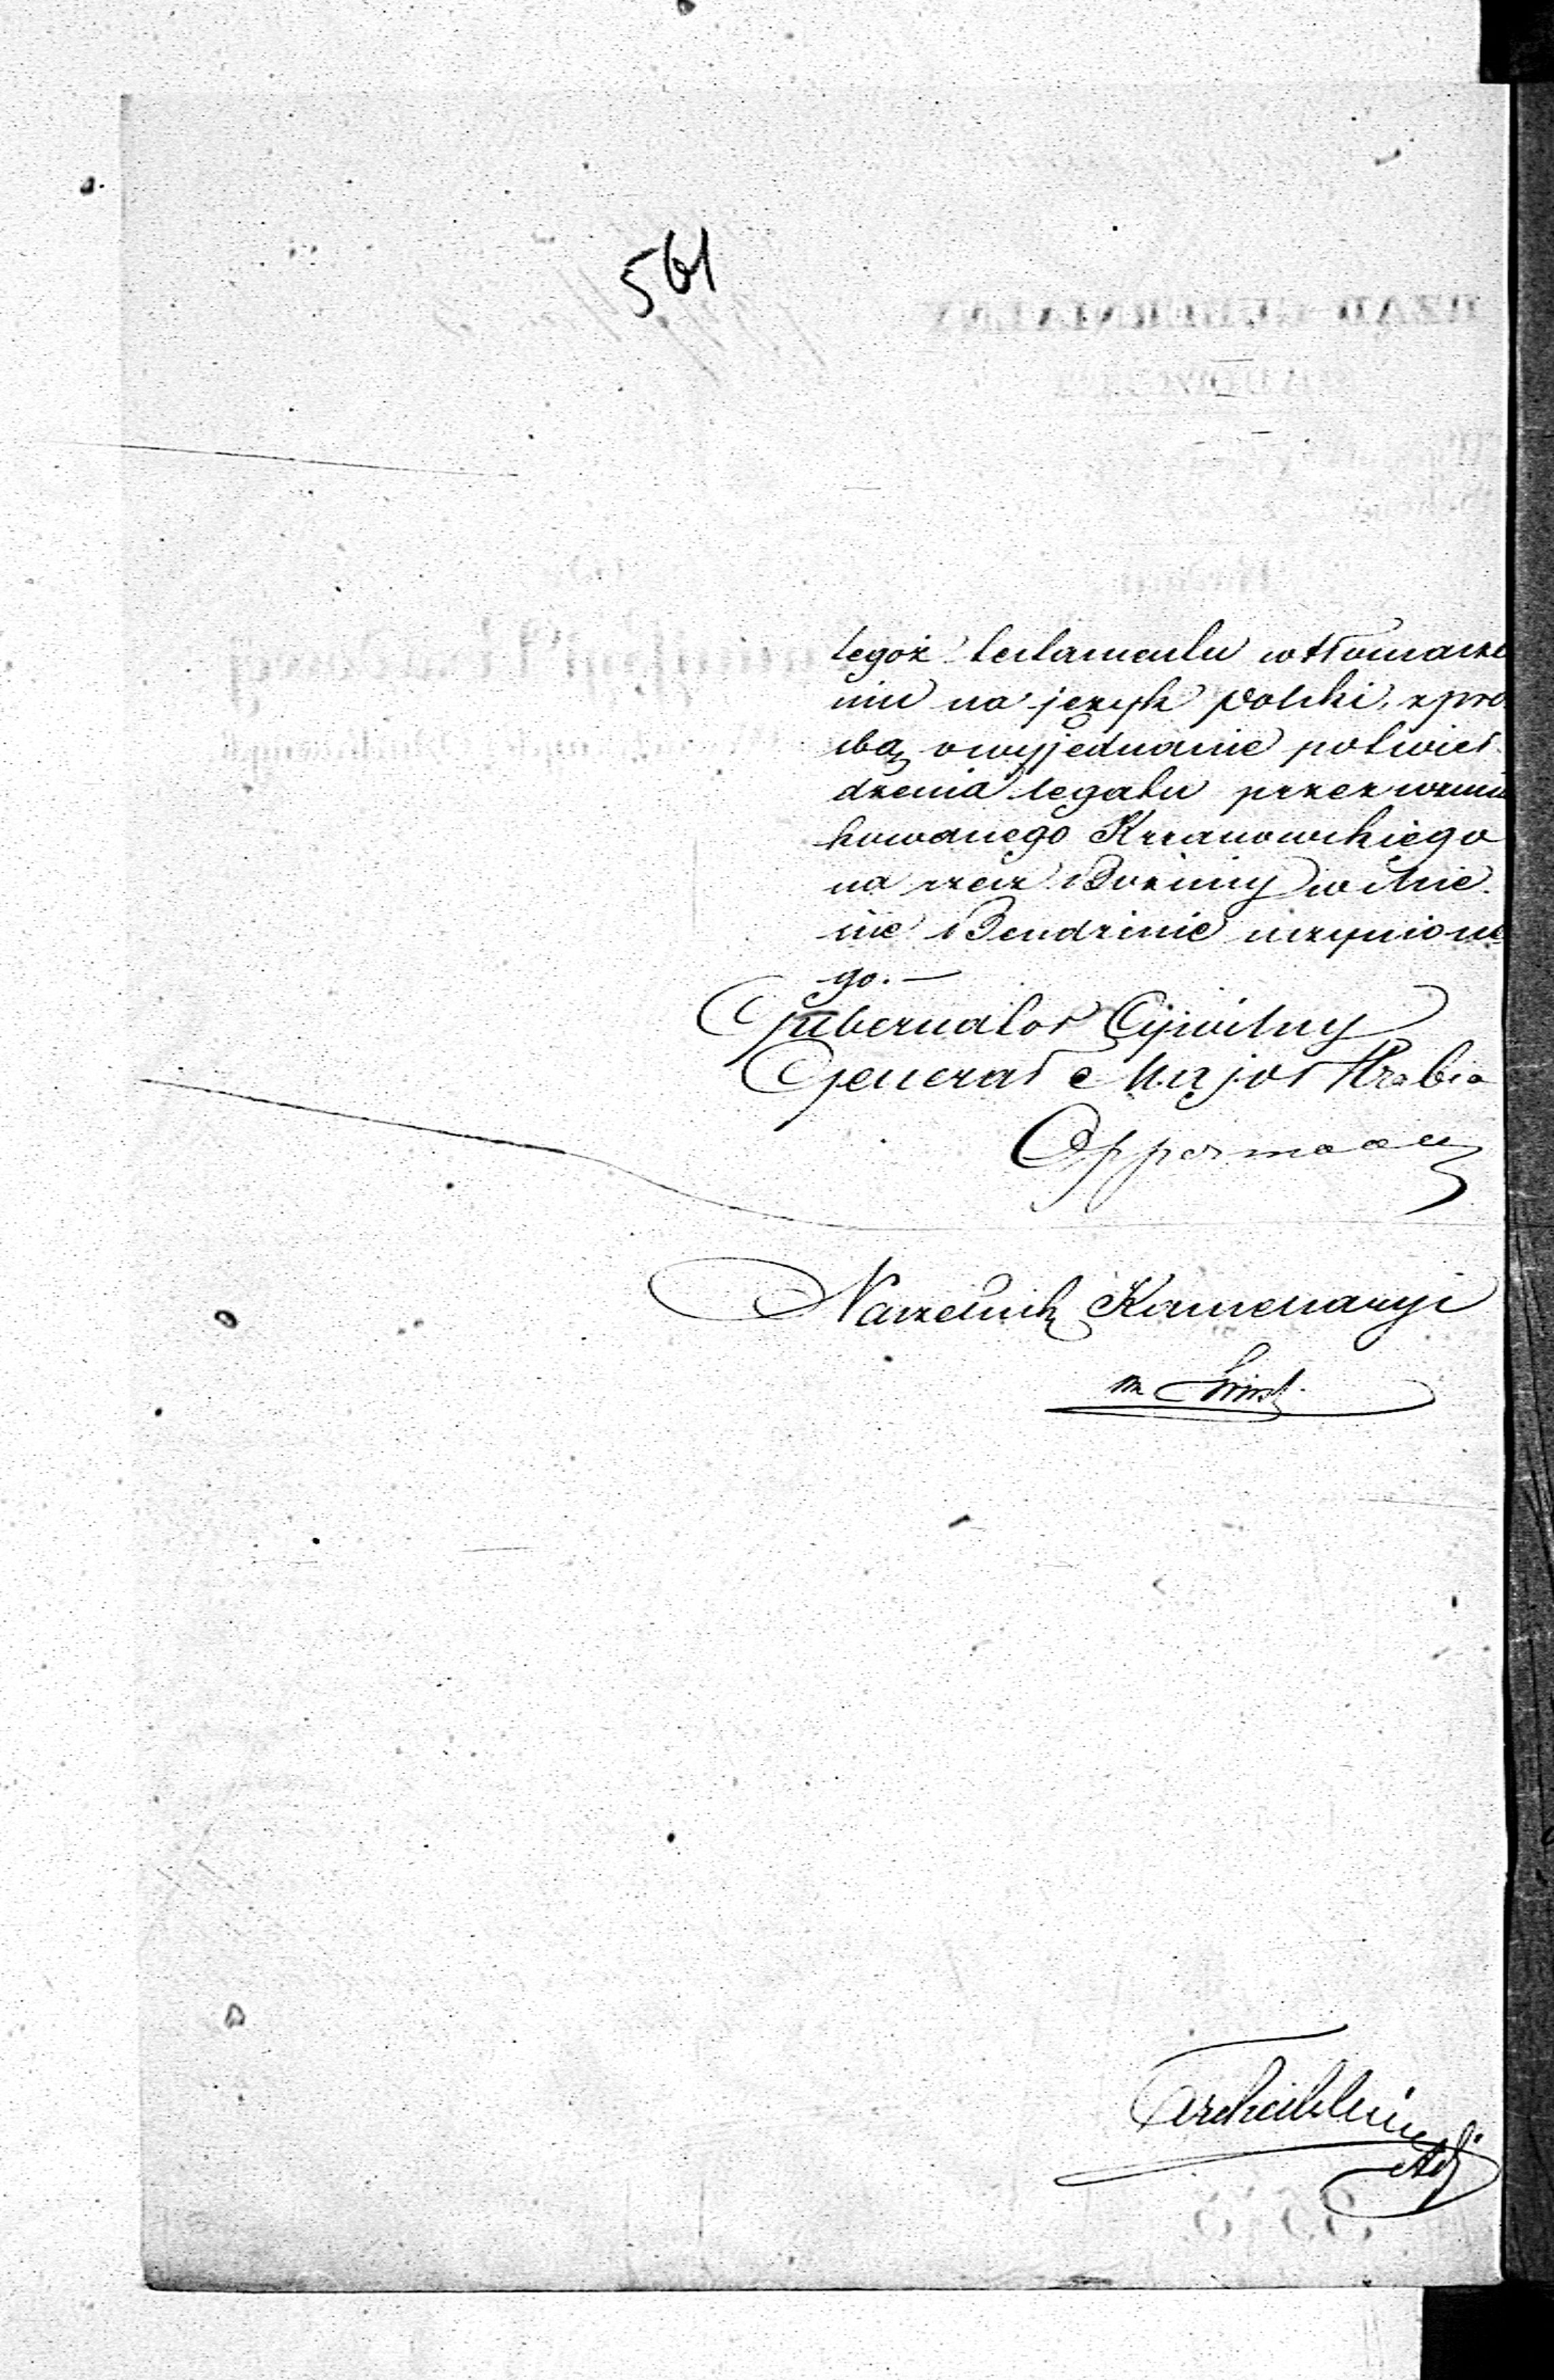 561
tegoż testamentu w tłomacze
niu na język polski, z pro
śbą o wyjednanie potwier
dzenia legatu przez wzmian
kowanego Krzanowskiego
na rzecz Bożnicy w mie
ście Bendzinie uczynione
go. —
Gubernator Cywilny
Generał Major Hrabia
Oppermann
Naczelnik Kancellaryi